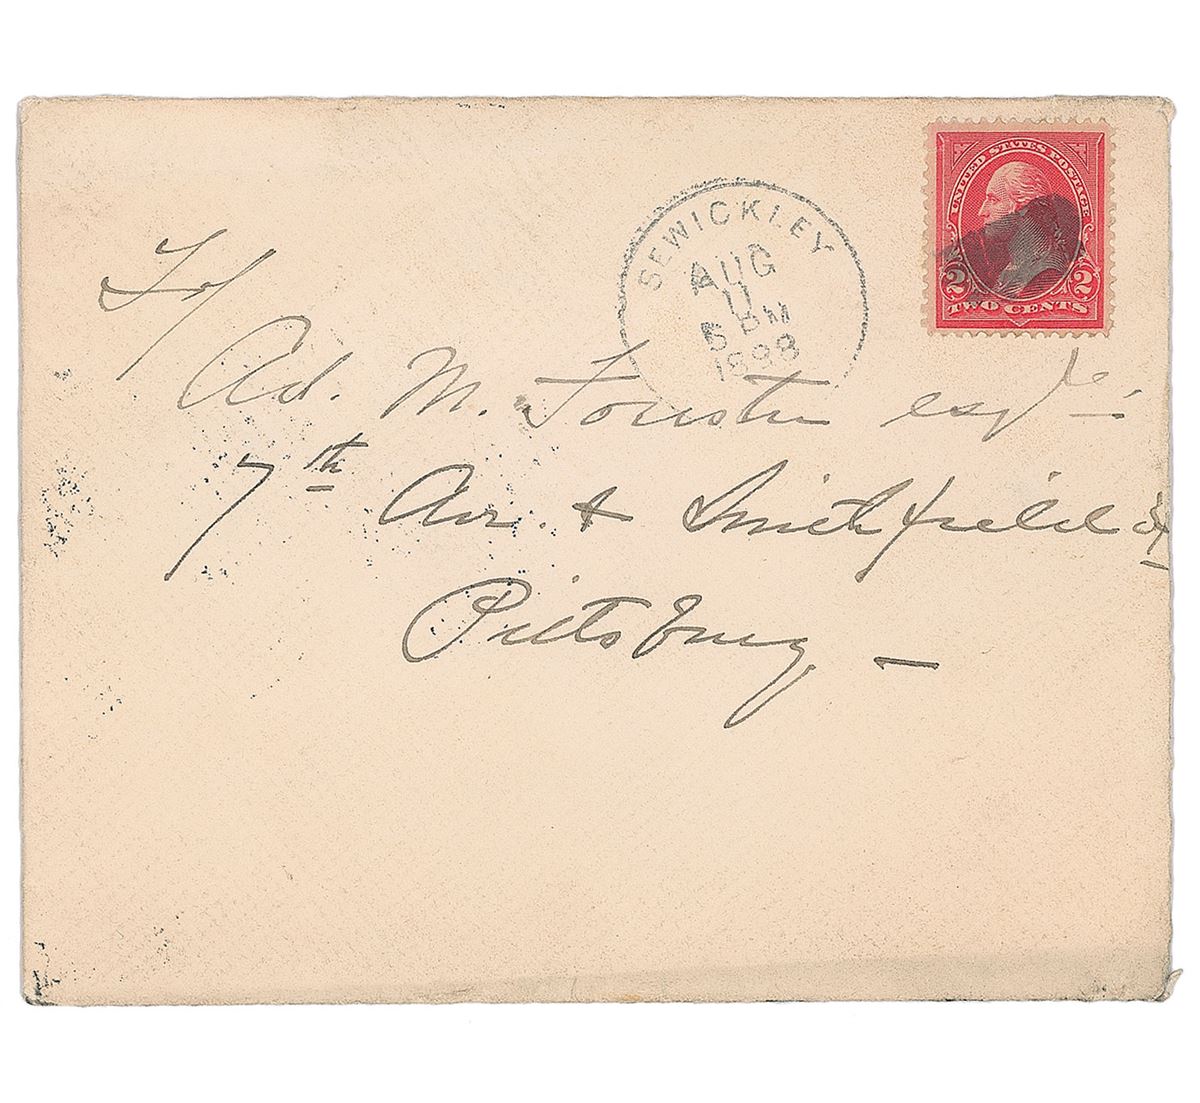 UNITED STATES POSTAGE
2 2
TWO CENTS
SEWICKLEY
AUG
11
5 PM
1898
To/
Ad. M. Fouster esqre
7th Av. & Smithfield St
Pittsburg —